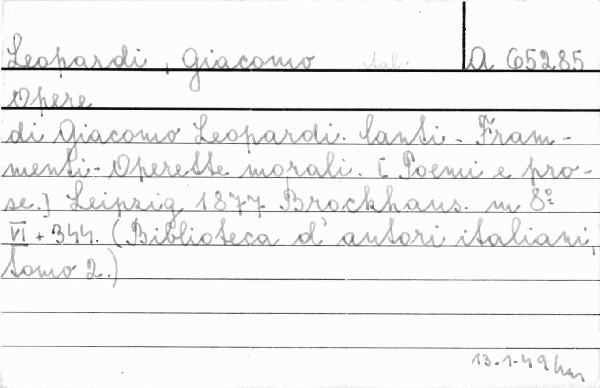 Leopardi, Giacomo ital. A 65285
Opere
di Giacomo Leopardi. Canti - Fram-
menti - Operette morali. [Poemi e pro-
se.] Leipzig 1877 Brockhaus. m 8°
VI + 344. (Biblioteca d'autori italiani,
tomo 2.)
13-1-49